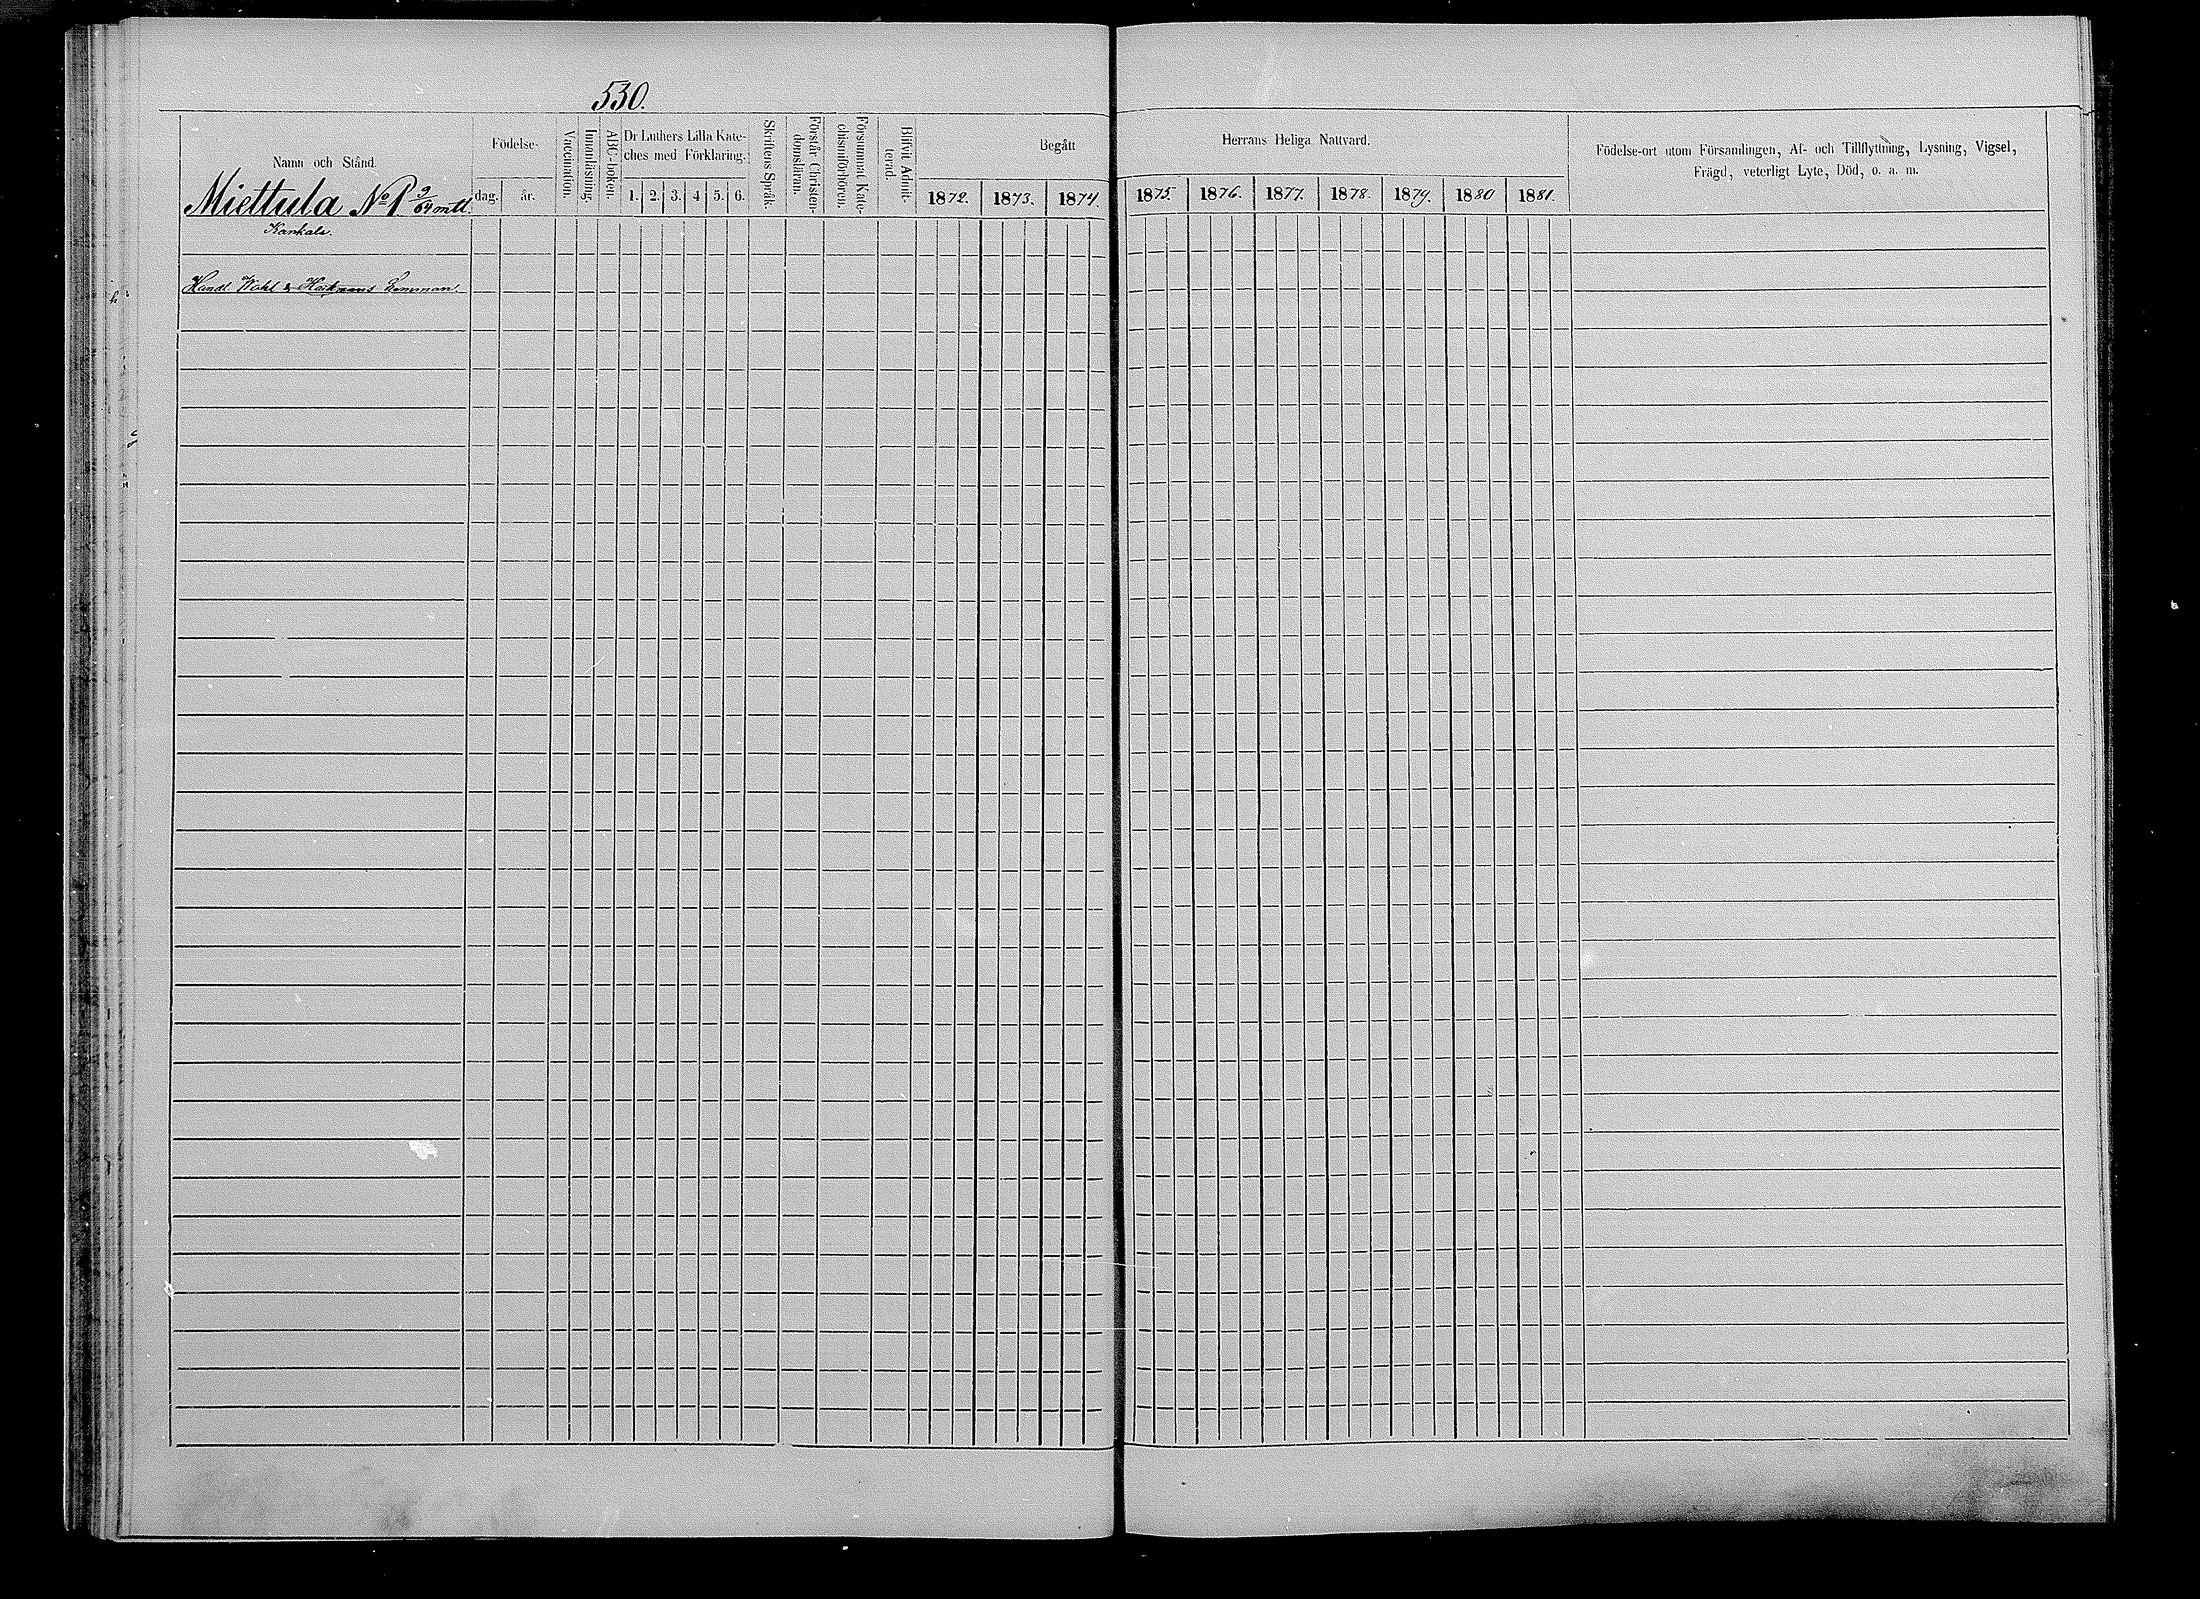 530.
Namn och Stånd.
Födelse-
dag.
år.
Vaccination.
Innanläsning.
ABC-boken.
Dr Luthers Lilla Kate-
ches med Förklaring.
1. 2. 3. 4 5. 6.
Skriftens Språk.
Förstår Christen-
domsläran.
Försummat Kate-
chismiförhören.
Blifvit Admit-
terad.
Begått
1872. 1873. 1874.
Herrans Heliga Nattvard.
1875. 1876. 1877. 1878. 1879. 1880 1881.
Födelse-ort utom Församlingen, Af- och Tillflyttning, Lysning, Vigsel,
Frägd, veterligt Lyte, Död, o. a. m.
Miettula No 1 9/64 mtl.
Kankals.
Handl. Wahl &